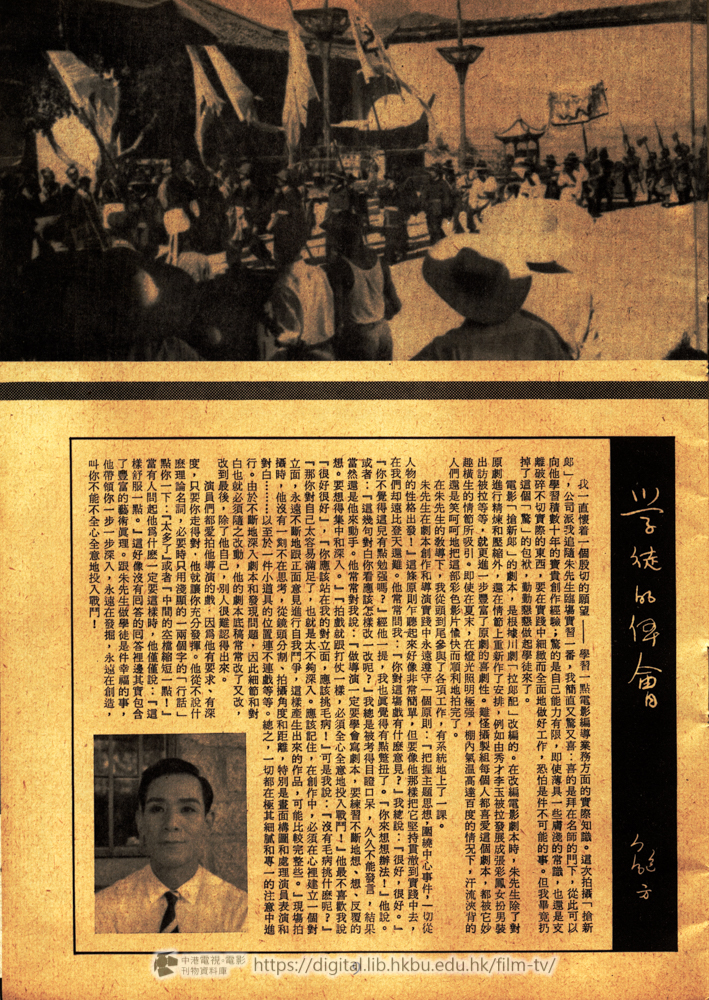 学徒的体會
鮑方
我一直懷着一個殷切的願望——學習一點電影編導業務方面的實際知識。這次拍攝「搶新
郞」,公司派我追隨朱先生臨塲實習一番,我簡直又驚又喜:喜的是拜在名師的門下,從此可以
向他學習積數十年的寶貴創作經驗;驚的是自己能力有限,即使薄具一些膚淺的常識,也還是支
離破碎不切實際的東西,要在實踐中細緻而全面地做好工作,恐怕是件不可能的事。但我畢竟扔
掉了這個「驚」的包袱,勤勤懇懇做起學徒來了。
電影「搶新郞」的劇本,是根據川劇「拉郞配」改編的。在改編電影劇本時,朱先生除了對
原劇進行精煉和壓縮外,還在情節上重新作了安排,例如由秀才李玉被拉發展成張彩鳳女扮男裝
出訪被拉等等,就更進一步豐富了原劇的喜劇性。難怪攝製組每個人都喜愛這個劇本,都被它妙
趣橫生的情節所吸引。即使在夏末,在燈光照明極强,棚內氣温高達百度的情況下,汗流浹背的
人們還是笑呵呵地把這部彩色影片愉快而順利地拍完了。
在朱先生的敎導下,我從頭到尾參與了各項工作,有系統地上了一課。
朱先生在劇本創作和導演實踐中永遠遵守一個原則:「把握主題思想,圍繞中心事件,一切從
人物的性格出發!」這條原則乍聽起來好像非常簡單,但要像他那樣把它堅持貫澈到實踐中去,
在我們却遠比登天還難。他常常問我:「你對這塲戲有什麽意見?」我總說:「很好,很好。」
「你不覺得這兒有點勉强嗎?」經他一提,我也眞覺得有點蹩扭了。「你來想想辦法!」他說。
或者:「這幾句對白你看應該怎樣改一改呢?」我總是被考得目瞪口呆,久久不能發言,結果
當然還是他來動手。他常常對我說:「做導演一定要學會寫劇本,要練習不斷地想、想、反覆的
想。要想得集中和深入。」「拍戲就跟打仗一樣,必須全心全意地投入戰鬥!」他最不喜歡我說
「很好很好」,「你應該站在我的對立面,應該挑毛病!」可是我說:「沒有毛病挑什麽呢?」
「那你對自己太容易滿足了,也就是太不夠深入。應該記住,在創作中,必須在心裡建立一個對
立面,永遠不斷地跟正面意見進行自我鬥爭,這樣產生出來的作品,可能比較完整些。」現塲拍
攝時,他沒有一刻不在思考,從鏡頭分割、拍攝角度和距離,特別是畫面構圖和處理演員表演和
對白⋯⋯以至於一件小道具的位置連不連戲等等。總之,一切都在極其細膩和專一的注意中進
行。由於不斷地深入劇本和發現問題,因此細節和對
白也就必須隨之改動,他的劇本底稿常常改了又改,
改到最後,除了他自己,別人很難認得出來。
演員們都愛拍他導演的戲,因爲他有要求、有深
度,只要你走得對,他就讓你充分發揮。他從不說什
麽理論名詞,必要時只用淺顯的一兩個字的「行話」
點你一下:「太多了」或者「中間的空檔縮短一點!」
當有人問起他爲什麽一定要這樣時,他僅僅說:「這
樣舒服一點。」這好像沒有囘答的囘答裡邊其實包含
了豐富的藝術眞理。跟朱先生做學徒是件幸福的事,
他帶領你一步一步深入,永遠在發掘,永遠在創造,
叫你不能不全心全意地投入戰鬥!
中港電視・電影
刊物資料庫
https://digital.lib.hkbu.edu.hk/film-tv/